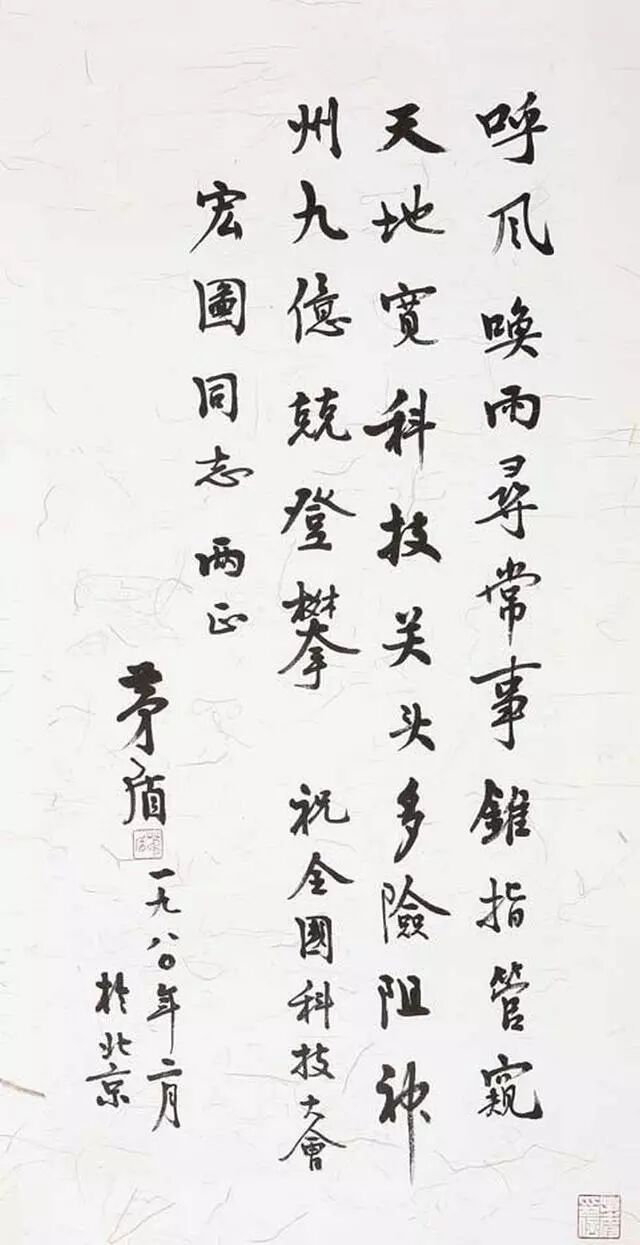 呼风唤雨尋常事錐指管窺
天地寬科技关头多險阻神
州九億競登攀　祝全國科技大會
宏圖同志两正
茅盾
一九八〇年二月
於北京